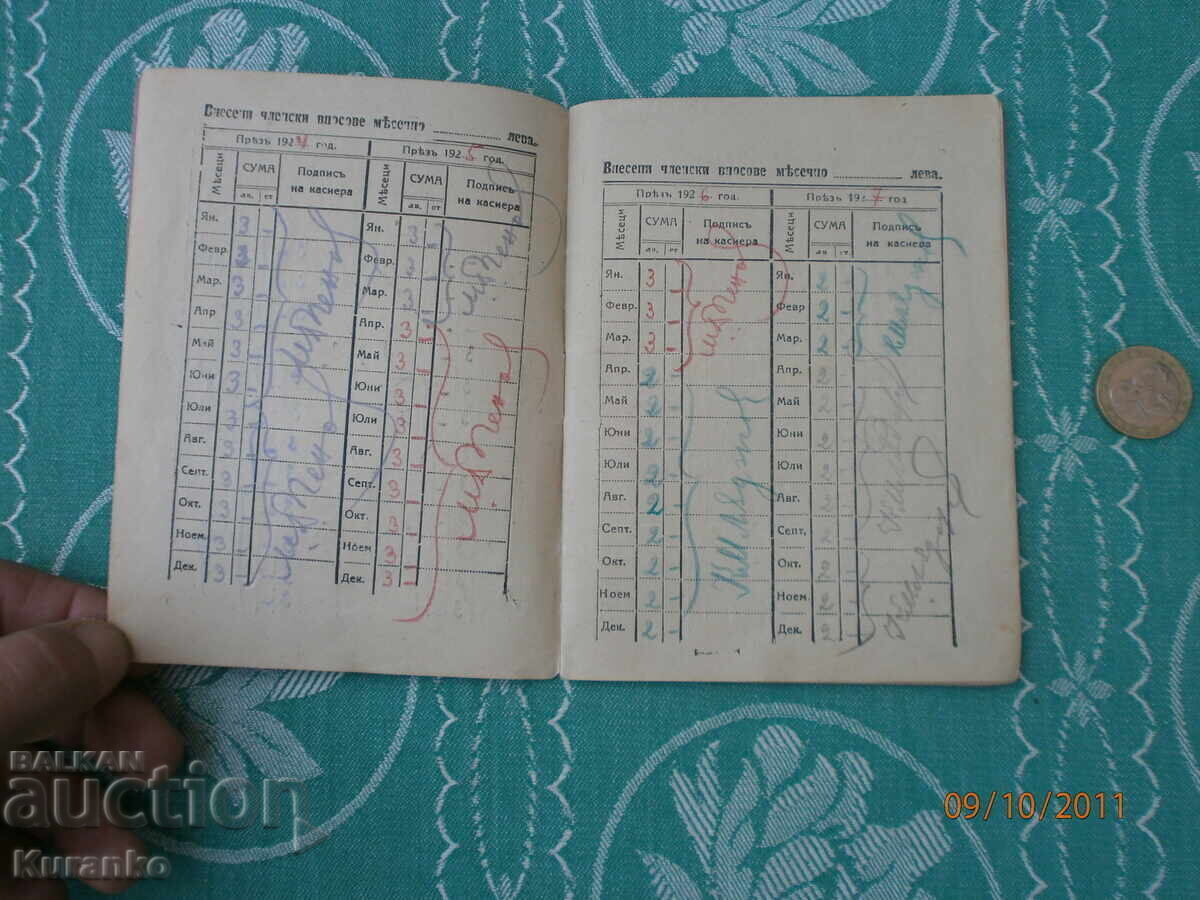 Внесени членски вносове мѣсечно ........ лева.
Прѣзъ 1924 год. Прѣзъ 1925 год.
Мѣсеци СУМА Подпись на касиера Мѣсеци СУМА Подпись на касиера
лв. ст лв. ст
Ян. 3 - Ян. 3 -
Февр. 3 - Февр. 3 -
Мар. 3 - Мар. 3 -
Апр 3 - Апр. 3 -
Май 3 - Май 3 -
Юни 3 - Юни 3 -
Юли 3 - Юли 3 -
Авг. 3 - Авг. 3 -
Септ. 3 - Септ. 3 -
Окт. 3 - Окт. 3 -
Ноем. 3 - Ноем. 3 -
Дек. 3 - Дек. 3 -
Внесени членски вносове мѣсечно ........ лева.
Прѣзъ 1926 год. Прѣзъ 1927 год
Мѣсеци СУМА Подпись на касиера Мѣсеци СУМА Подпись на касиера
лв. ст лв. ст.
Ян. 3 - Ян. 2 -
Февр. 3 - Февр 2 -
Мар. 3 - Мар. 2 -
Апр. 2 - Апр. 2 -
Май 2 - Май 2 -
Юни 2 - Юни 2 -
Юли 2 - Юли 2 -
Авг. 2 - Авг. 2 -
Септ. 2 - Септ. 2 -
Окт. 2 - Окт. 2 -
Ноем 2 - Ноем. 2 -
Дек. 2 - Дек. 2 -
BALKAN
auction
Kuranko
09/10/2011